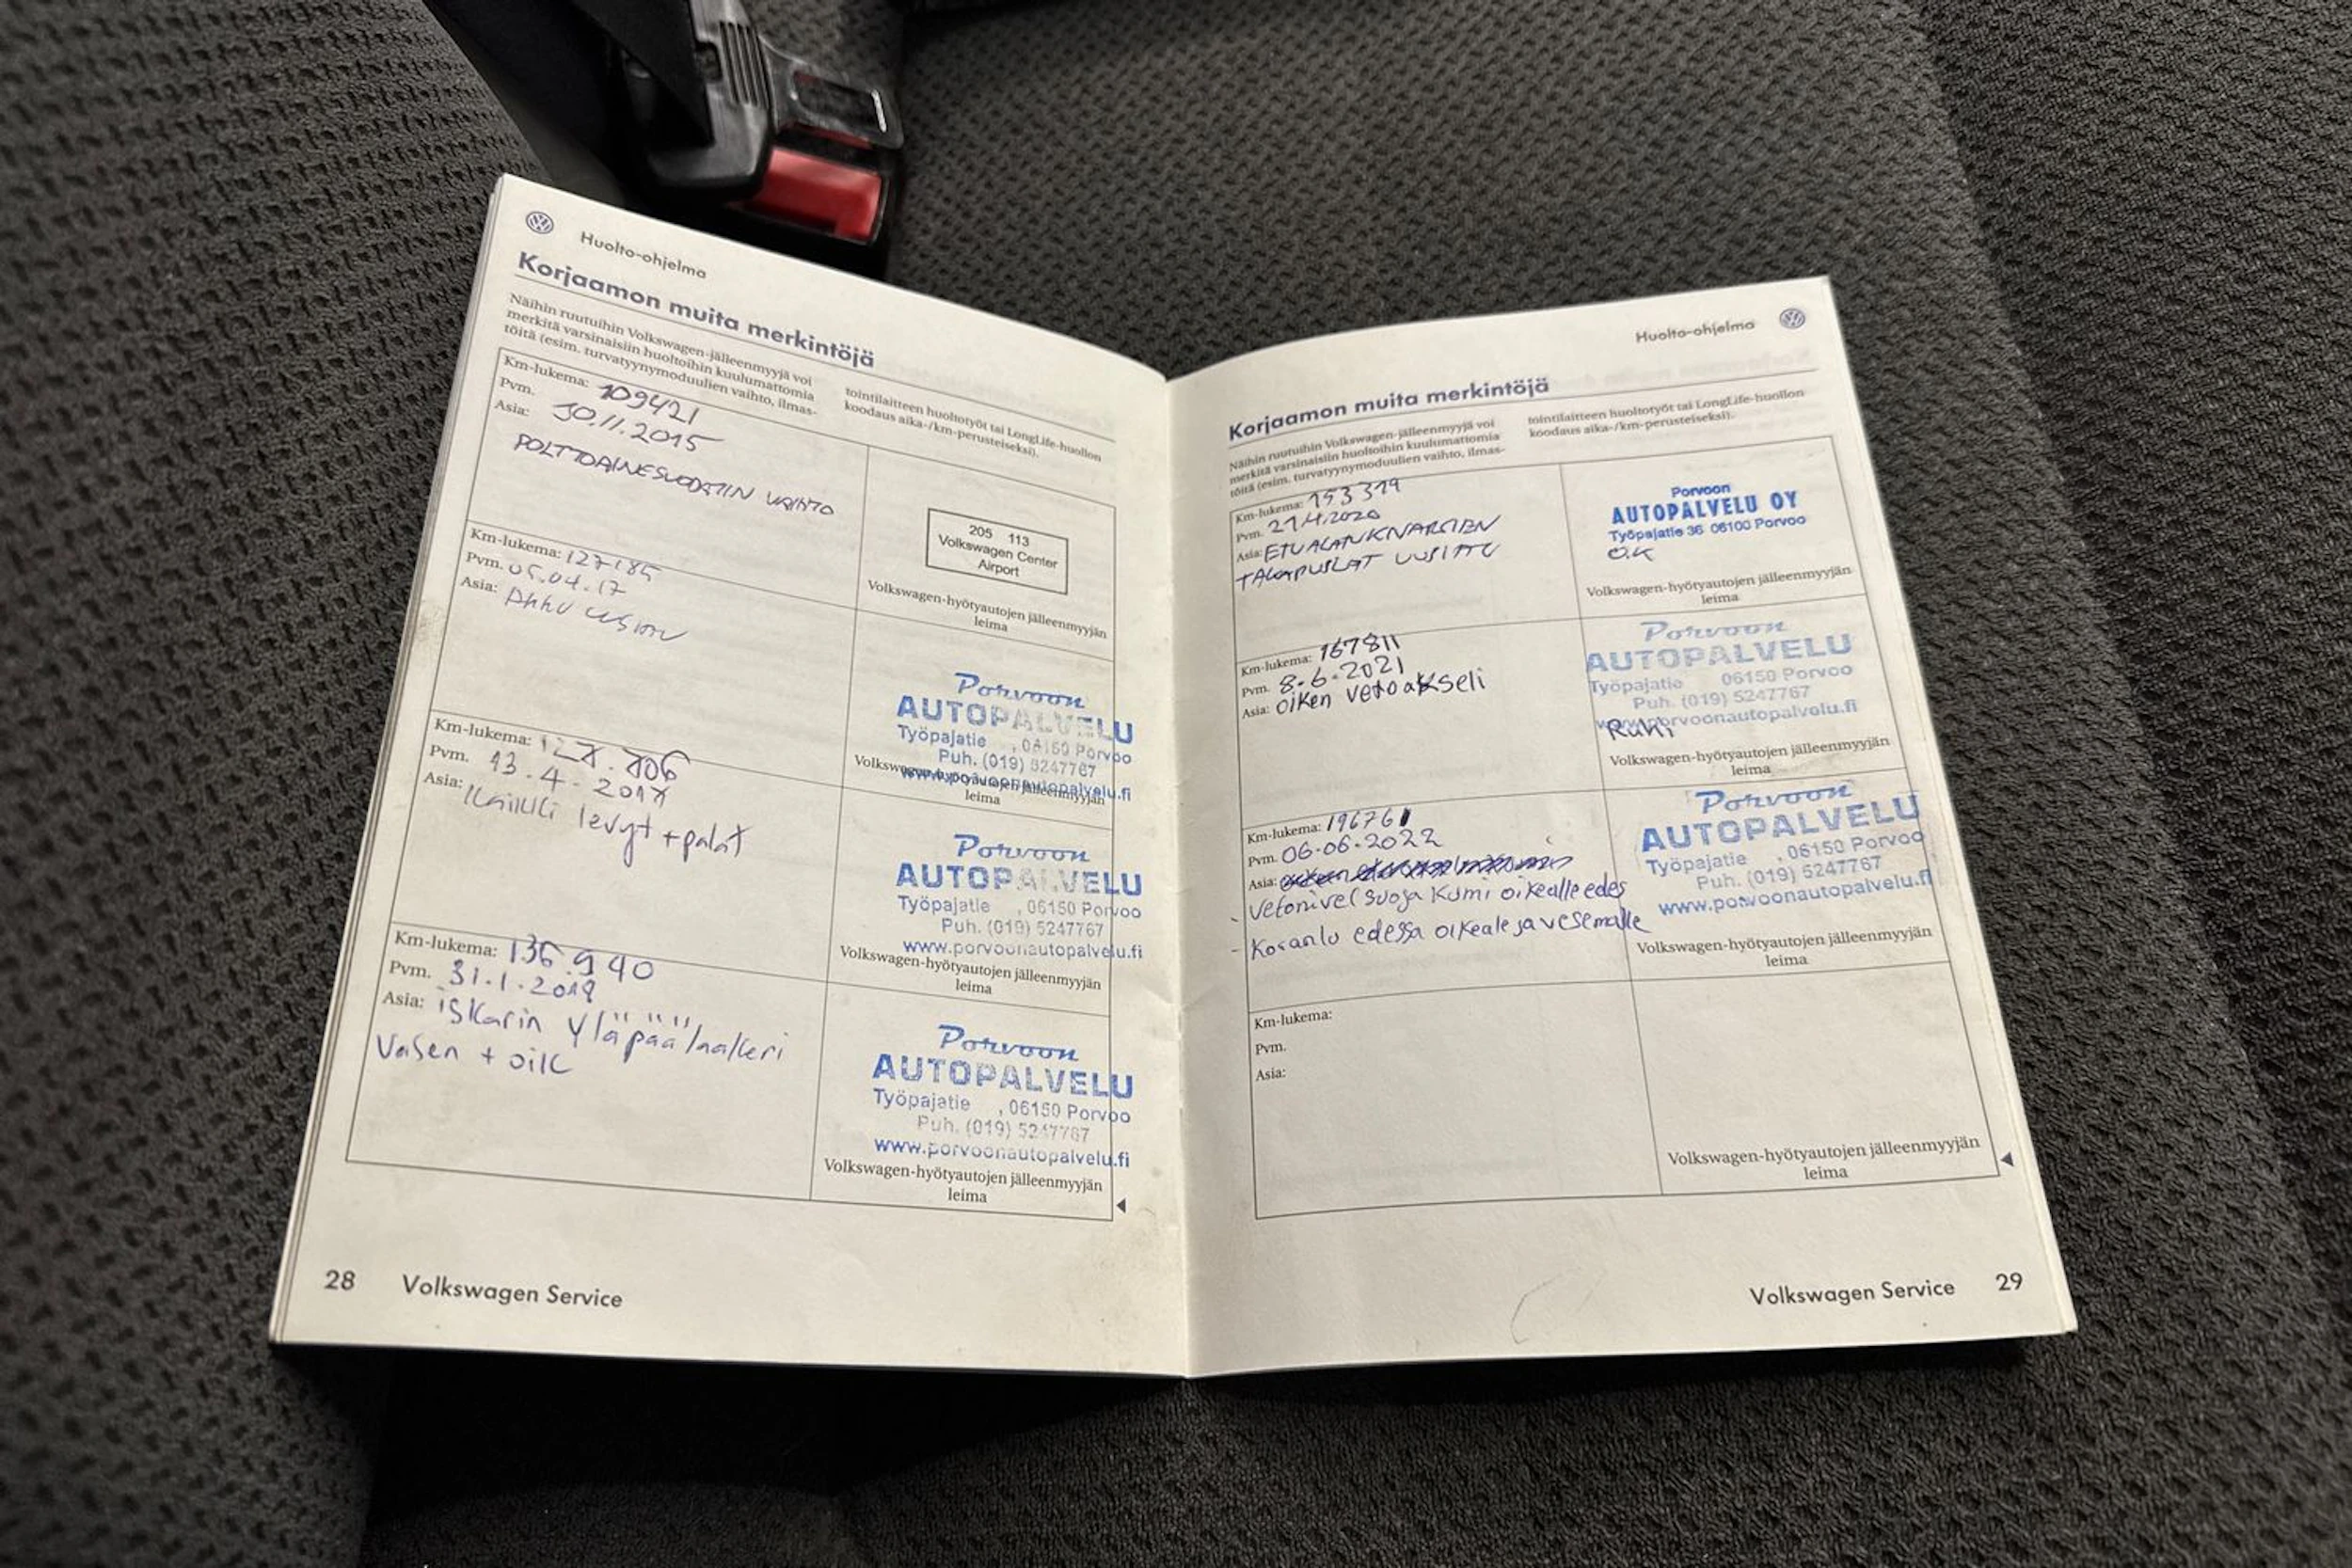 Huolto-ohjelma
Korjaamon muita merkintöjä
Näihin ruutuihin Volkswagen-jälleenmyyjä voi
merkitä varsinaisiin huoltoihin kuulumattomia
töitä (esim. turvatyynymoduulien vaihto, ilmas-
tointilaitteen huoltotyöt tai LongLife-huollon
koodaus aika-/km-perusteiseksi).
Km-lukema: 109421
Pvm. 30.11.2015
Asia:
POLTTOAINESUODATIN VAIHTO
205 113
Volkswagen Center
Airport
Volkswagen-hyötyautojen jälleenmyyjän
leima
Km-lukema: 127185
Pvm. 05.04.17
Asia: Akku
Porvoon
AUTOPALVELU
Työpajatie , 06150 Porvoo
Puh. (019) 5247767
www.porvoonautopalvelu.fi
Volkswagen-hyötyautojen jälleenmyyjän
leima
Km-lukema:
Pvm. 13.4.2017
Asia: Kaikki levyt + palat
Porvoon
AUTOPALVELU
Työpajatie , 06150 Porvoo
Puh. (019) 5247767
www.porvoonautopalvelu.fi
Volkswagen-hyötyautojen jälleenmyyjän
leima
Km-lukema: 136.940
Pvm. 31.1.2018
Asia: iskarin yläpää laakeri
Vasen + oik
Porvoon
AUTOPALVELU
Työpajatie , 06150 Porvoo
Puh. (019) 5247767
www.porvoonautopalvelu.fi
Volkswagen-hyötyautojen jälleenmyyjän
leima
28 Volkswagen Service
Huolto-ohjelma
Korjaamon muita merkintöjä
Näihin ruutuihin Volkswagen-jälleenmyyjä voi
merkitä varsinaisiin huoltoihin kuulumattomia
töitä (esim. turvatyynymoduulien vaihto, ilmas-
tointilaitteen huoltotyöt tai LongLife-huollon
koodaus aika-/km-perusteiseksi).
Km-lukema: 153319
Pvm. 21.4.2020
Asia: ETUALATUKIVARSIEN
TAKAPUSLAT UUSITTU
Porvoon
AUTOPALVELU OY
Työpajatie 36 06100 Porvoo
O.K
Volkswagen-hyötyautojen jälleenmyyjän
leima
Km-lukema: 167811
Pvm. 8.6.2021
Asia: oiken vetoakseli
Porvoon
AUTOPALVELU
Työpajatie 06150 Porvoo
Puh. (019) 5247767
www.porvoonautopalvelu.fi
Volkswagen-hyötyautojen jälleenmyyjän
leima
Km-lukema: 196761
Pvm. 06.06.2022
Asia:
- Vetonivel suoja kumi oikealle edes
- Koiranlu edessä oikeale ja vesemalle
Porvoon
AUTOPALVELU
Työpajatie , 06150 Porvoo
Puh. (019) 5247767
www.porvoonautopalvelu.fi
Volkswagen-hyötyautojen jälleenmyyjän
leima
Km-lukema:
Pvm.
Asia:
Volkswagen-hyötyautojen jälleenmyyjän
leima
Volkswagen Service 29